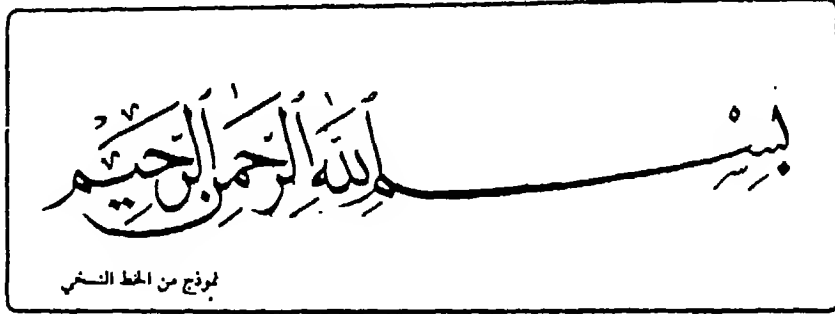 بِسْمِ اللهِ الرَّحْمٰنِ الرَّحِيمِ
نموذج من الخط النسخي